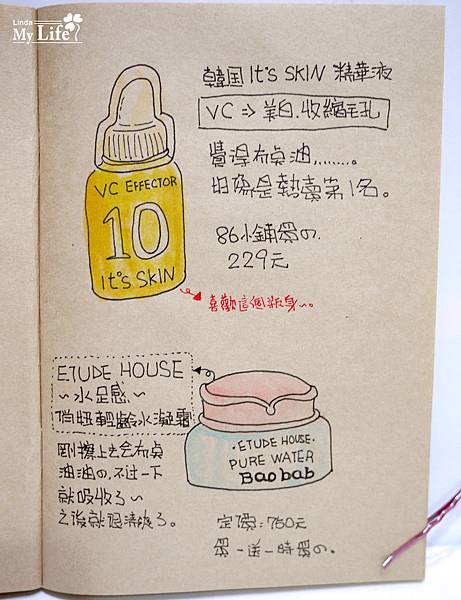 Linda
My Life
韓国 It's SKIN 精華液
VC ⇒ 美白.收縮毛孔
覺得有点油........。
旧像是熱賣第1名。
86小鋪買の.
229元
VC EFFECTOR
10
It's SKIN
喜歡這個瓶身~。
ETUDE HOUSE
~水足感~
俏妞輕齡水凝霜
剛擦上去会有点
油油の,不过一下
就吸收了~
之後就很清爽了。
·ETUDE HOUSE·
PURE WATER
Baobab
定價:760元
買一送一時買の。